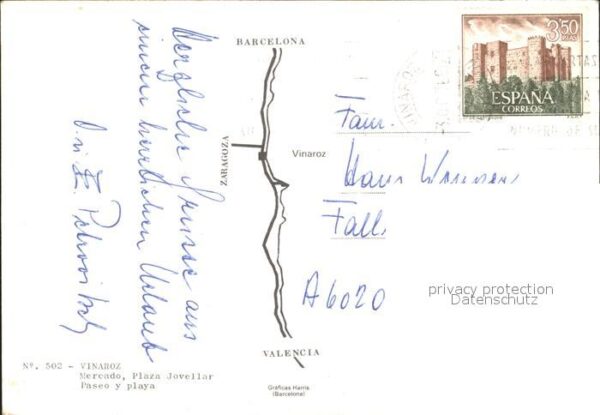 BARCELONA
ZARAGOZA
Vinaroz
VALENCIA
Gráficas Harris
(Barcelona)
3,50
PTAS
ESPAÑA
CORREOS
Herzliche Grüsse aus
einem herrlichen Urlaub
Fam.
Hans
Fall
A6020
privacy protection
Datenschutz
Nº. 502 - VINAROZ
Mercado, Plaza Jovellar
Paseo y playa